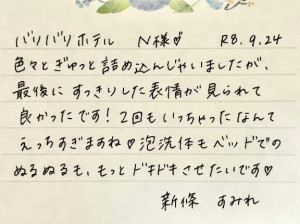 バリバリホテル N様♡ R8.9.24
色々とぎゅっと詰め込んじゃいましたが、
最後にすっきりした表情が見られて
良かったです！2回もいっちゃったなんて
えっちすぎますね♡泡洗体もベッドでの
ぬるぬるも、もっとドキドキさせたいです♡
新條 すみれ